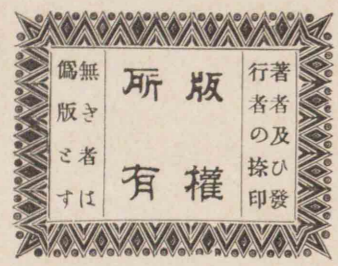 著者及ひ發
行者の捺印
版權
所有
無き者は
僞版とす